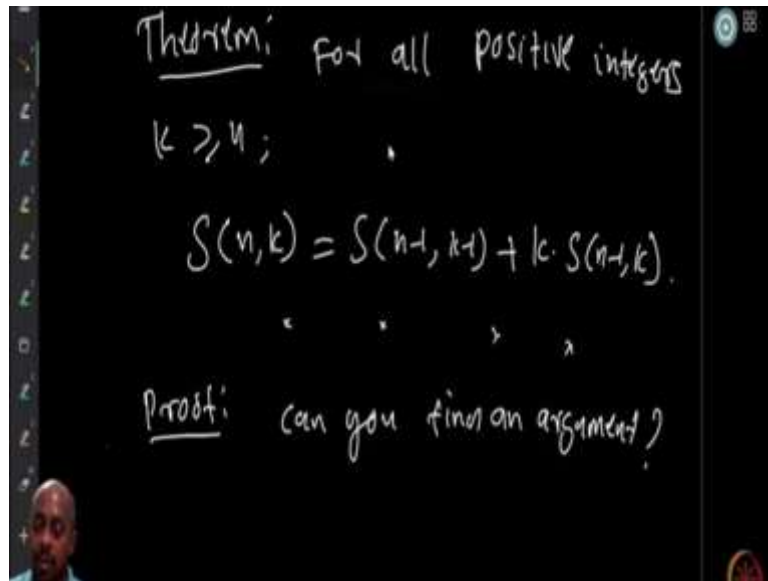 Theorem: For all positive integers
k ⩾ n;
S(n,k) = S(n-1, k-1) + k. S(n-1,k).
Proof: can you find an argument?